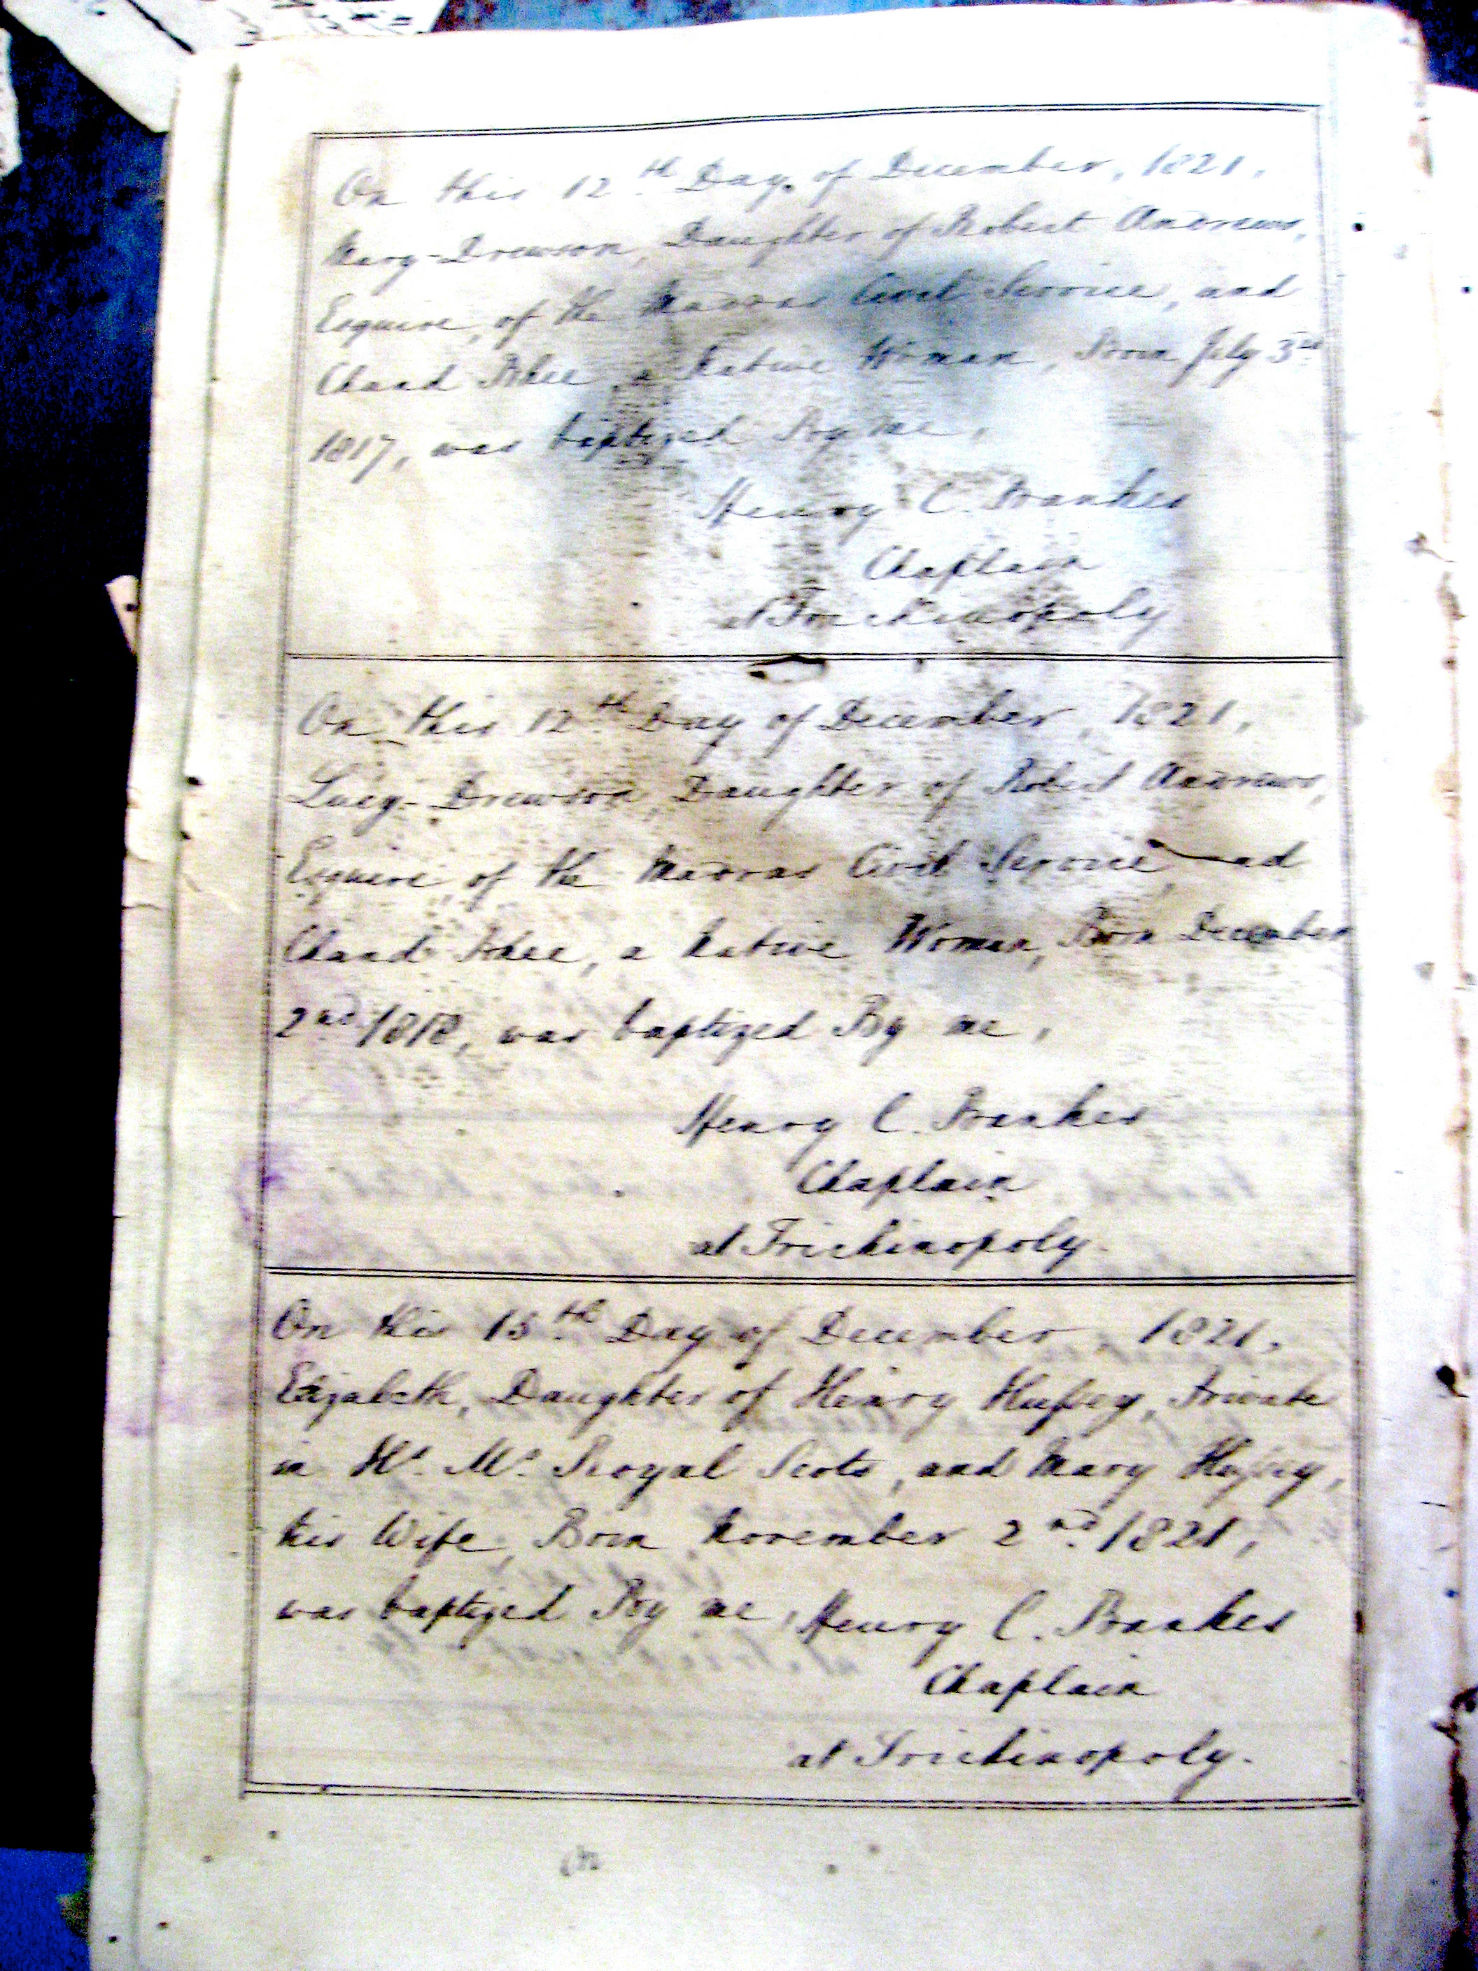 On this 12th Day of December, 1821,
Mary-Drewson, Daughter of Robert Andrews,
Esquire, of the Madras Civil Service, and
Chand Bhee, a Native Woman, Born July 3rd
1817, was baptized By me,
Henry C. Bankes
Chaplain
at Trichinopoly
On this 12th Day of December, 1821,
Lucy-Drewson, Daughter of Robert Andrews,
Esquire, of the Madras Civil Service, and
Chand Bhee, a Native Woman, Born December
2nd 1818, was baptized By me,
Henry C. Bankes
Chaplain
at Trichinopoly.
On this 15th Day of December, 1821,
Elizabeth, Daughter of Henry Hussey, Private
in Hs. Ms. Royal Scots, and Mary Hussey,
his Wife, Born November 2nd 1821,
was baptized By me, Henry C. Bankes
Chaplain
at Trichinopoly.
On